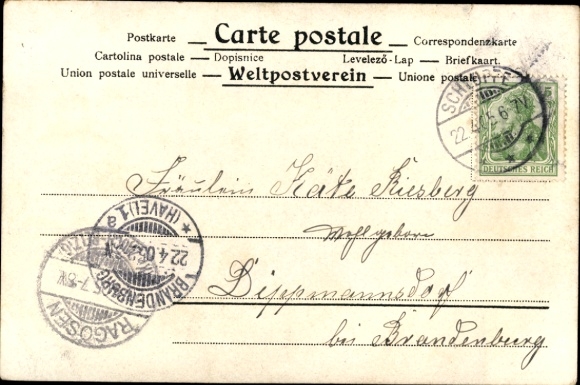 Postkarte — Carte postale — Correspondenzkarte
Cartolina postale — Dopisnice Levelező-Lap — Briefkaart.
Union postale universelle — Weltpostverein — Unione postale
22.4.05 6-7N
5
DEUTSCHES REICH
Fräulein Käte Riesberg
Wohlgeboren
Dippmannsdorf
bei Brandenburg
BRANDENBURG (HAVEL) 1 a
22.4.05
RAGÖSEN